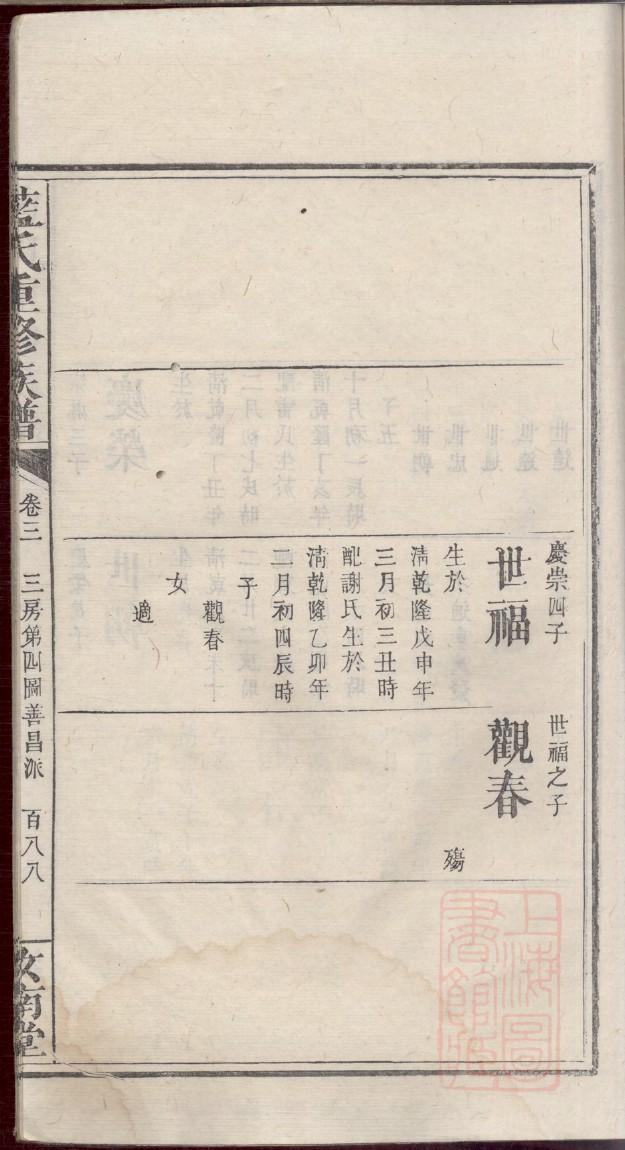 慶崇四子
世福
生於
清乾隆戊申年
三月初三丑時
配謝氏生於
清乾隆乙卯年
二月初四辰時
子
觀春
女
適
世福之子
觀春
殤
藍氏重修族譜
卷三
三房第四圖善昌派
百八八
汝南堂
上海圖書館藏